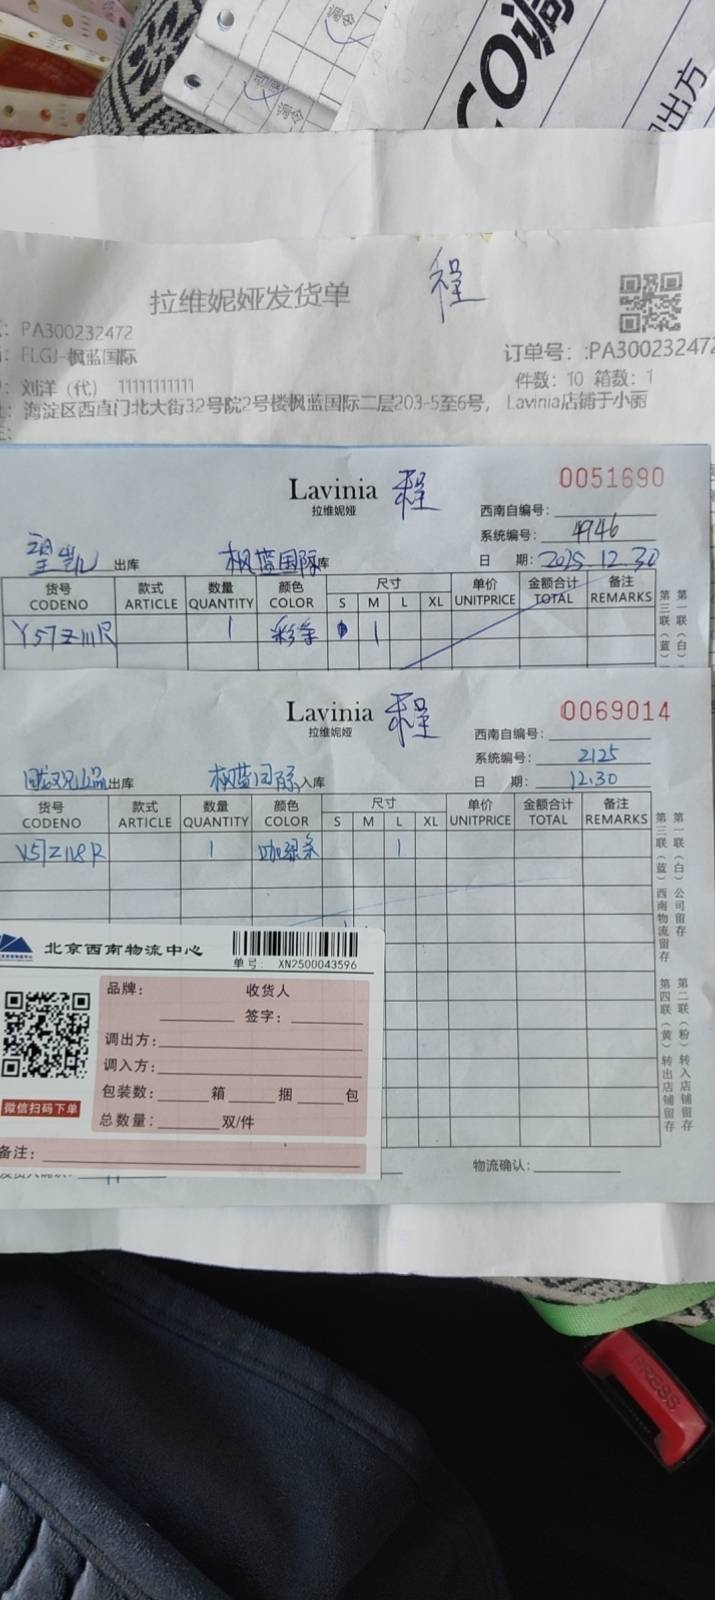 调令
调令
CO调
调出方
程
拉维妮娅发货单
: PA300232472
: FLGJ-枫蓝国际
订单号: :PA300232472
: 刘洋（代） 11111111111
件数: 10 箱数: 1
: 海淀区西直门北大街32号院2号楼枫蓝国际二层203-5至6号， Lavinia店铺于小丽
Lavinia 程
拉维妮娅
0051690
西南自编号:
系统编号: 4946
望凯 出库 枫蓝国际库 日 期: 2025.12.30
货号 款式 数量 颜色 尺寸 单价 金额合计 备注
CODENO ARTICLE QUANTITY COLOR S M L XL UNITPRICE TOTAL REMARKS
Y57Z111R 1 彩条 1
第一联（白）
第三联（蓝）
Lavinia 程
拉维妮娅
0069014
西南自编号:
系统编号: 2125
出库 枫蓝国际入库 日 期: 12.30
货号 款式 数量 颜色 尺寸 单价 金额合计 备注
CODENO ARTICLE QUANTITY COLOR S M L XL UNITPRICE TOTAL REMARKS
Y57Z118R 1 咖绿条 1
第一联（白）公司留存
第三联（蓝）西南物流留存
第二联（粉）转入店铺留存
第四联（黄）转出店铺留存
北京西南物流中心
单号: XN2500043596
品牌: 收货人
签字:
调出方:
调入方:
包装数: 箱 捆 包
总数量: 双/件
微信扫码下单
备注:
物流确认:
PRESS